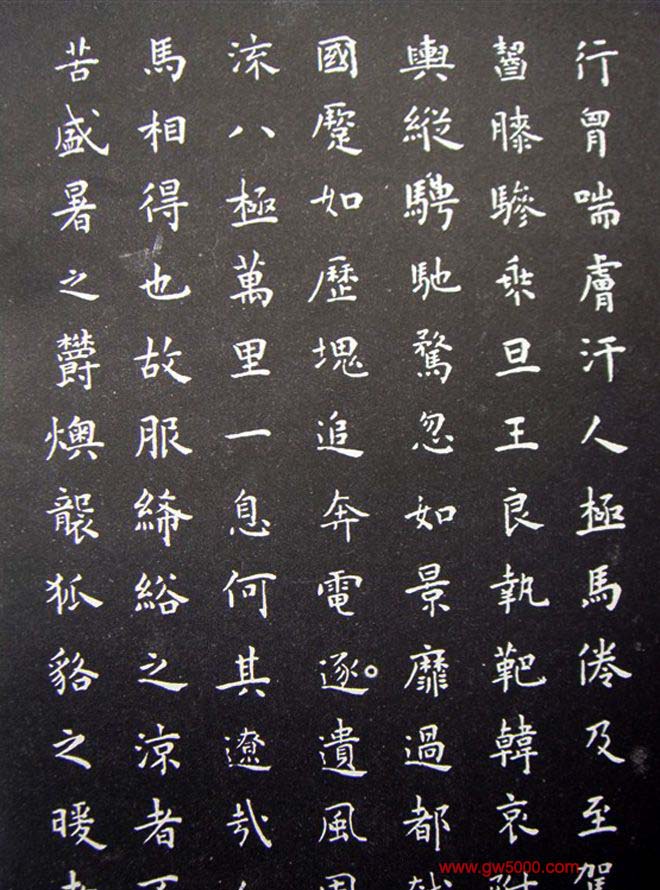 行胷喘膚汗人極馬倦及至
齧膝驂乗旦王良執靶韓哀
輿縱騁馳騖忽如景靡過都
國蹷如歷塊追奔電逐遺風
流八極萬里一息何其遼哉
馬相得也故服絺綌之涼者
苦盛暑之鬱燠襲狐貉之暖
www.gw5000.com